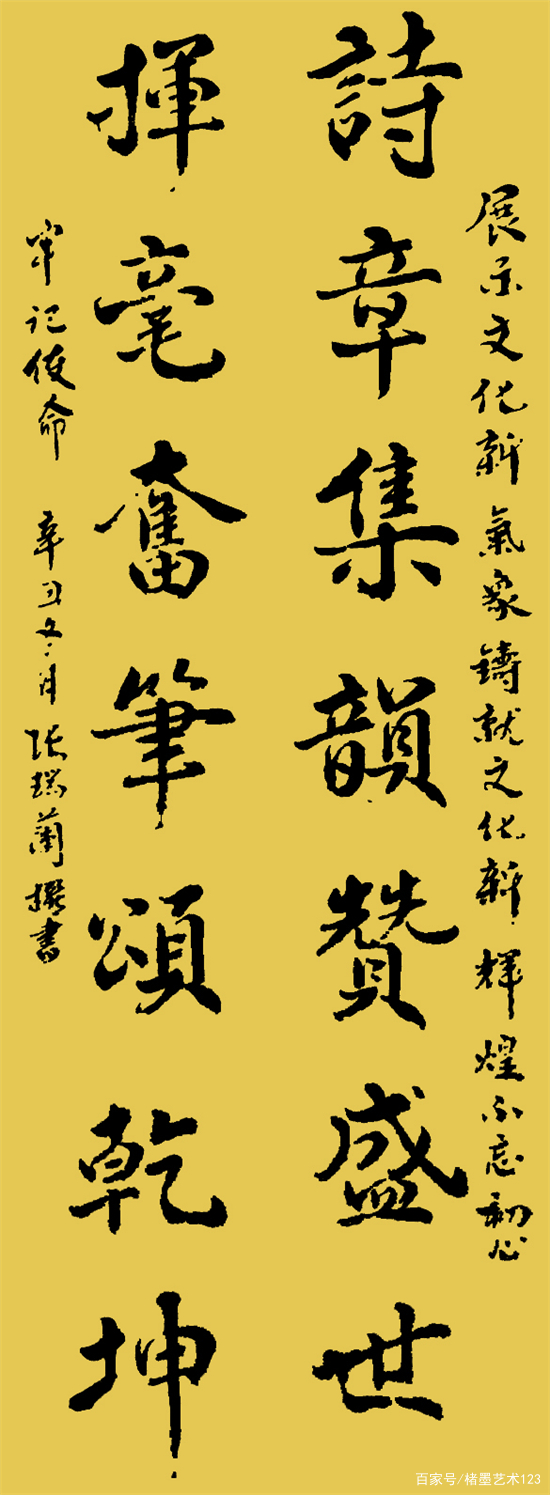 展示文化新氣象鑄就文化新輝煌不忘初心
詩章集韻贊盛世
揮毫奮筆頌乾坤
牢记使命 辛丑冬月 张瑞蘭撰書
百家号/楮墨艺术123